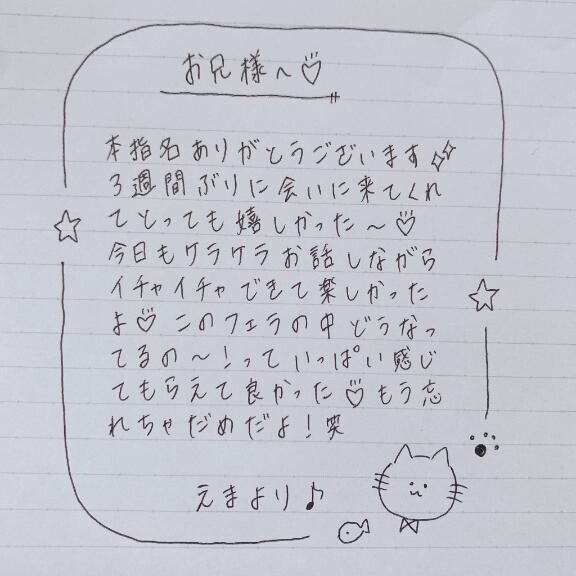 お兄様〜♡
本指名ありがとうございます✨
3週間ぶりに会いに来てくれ
てとっても嬉しかった〜♡
今日もケラケラお話しながら
イチャイチャできて楽しかった
よ♡ このフェラの中どうなっ
てるの〜！って いっぱい感じ
てもらえて良かった♡もう忘
れちゃだめだよ！笑
えまより♪